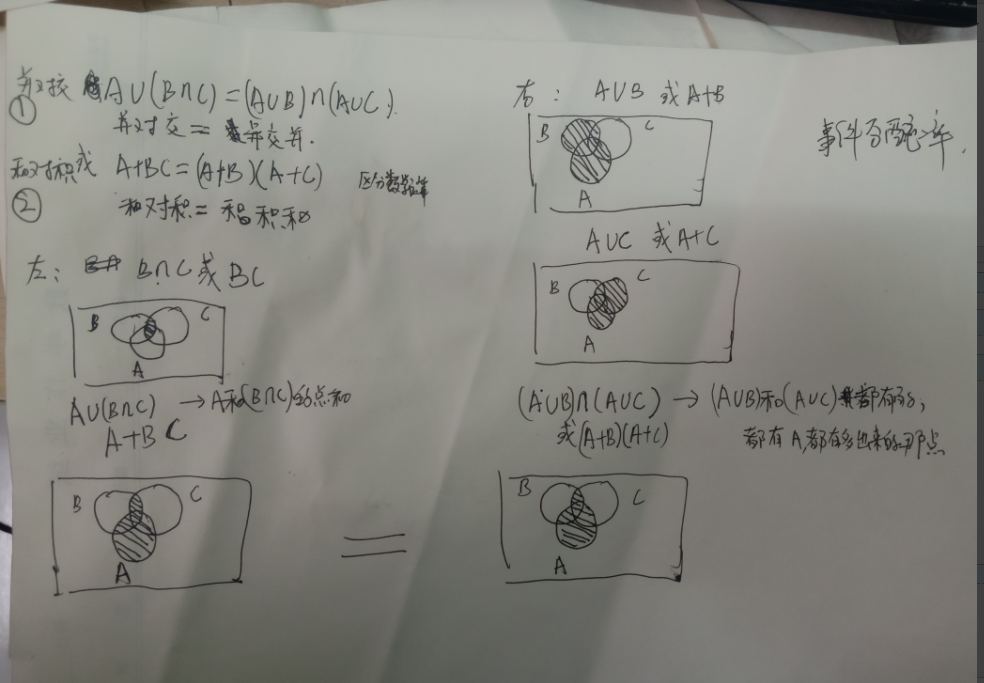 并对交 A∪(B∩C)=(A∪B)∩(A∪C).
①
并对交= 并交并.
和对积或 A+BC=(A+B)(A+C) 区分数学运算
② 和对积= 和积和
左: B∩C 或 BC
B C
A
A∪(B∩C) → A和(B∩C)的点和
A+BC
B C
A
=
右: A∪B 或 A+B
B C
A
A∪C 或 A+C
B C
A
(A∪B)∩(A∪C) → (A∪B)和(A∪C)都有的,
或(A+B)(A+C) 都有A,都有多出来的那点
B C
A
事件分配律.